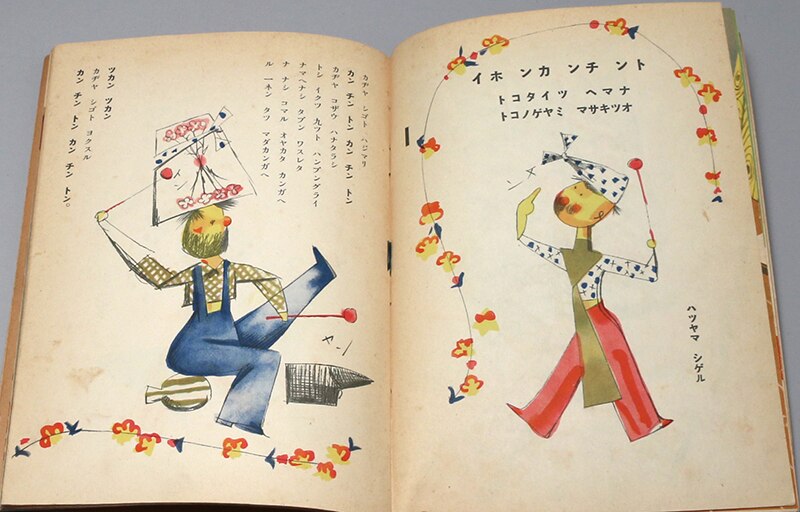 トンチンカンホイ
ナマヘ ツイタコト
オツキサマ ミヤゲノコト
ハツヤマ シゲル
カヂヤ シゴト ハジマリ
カン チン トン カン チン トン
カヂヤ コザウ ハナタラシ
トシ イクツ 九ツト ハンブングライ
ナマヘナシ タブン ワスレタ
ナ ナシ コマル オヤカタ カンガヘ
ル 一ネン タツ マダカンガヘ
ツカン ツカン
カヂヤ シゴト ヨクスル
カン チン トン カン チン トン。